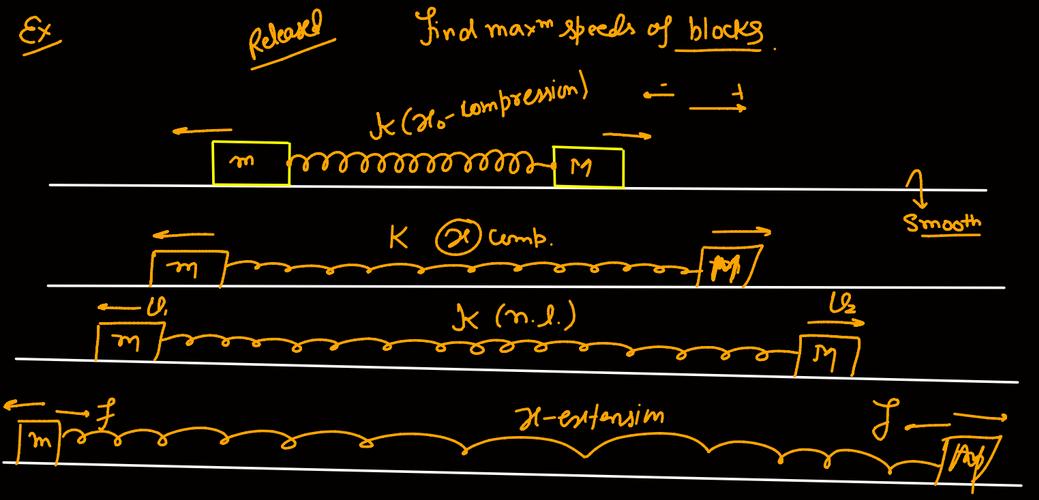 Ex
Released
Find maxᵐ speeds of blocks.
K (x₀-compression)
- +
m M
Smooth
K x comp.
m
v₁ K (n.l.) v₂
m M
f x-extensim f
m